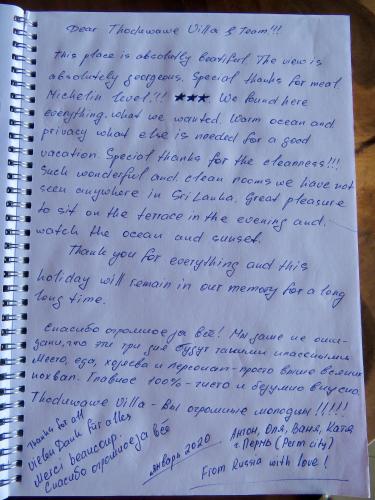 Dear Thoduwawe Villa & Team!!!
This place is absolutly beatiful. The view is
absolutely georgeous. Special thanks for meal.
Michelin level!!! ★★★ We found here
everything what we wanted. Warm ocean and
privacy what else is needed for a good
vacation. Special thanks for the cleanness!!!
Such wonderful and clean rooms we have not
seen anywhere in Sri Lanka. Great pleasure
to sit on the terrace in the evening and
watch the ocean and sunset.
Thank you for everything and this
holiday will remain in our memory for a long
long time.
Спасибо огромное за всё! Мы даже не ожи-
дали, что эти три дня будут такими классными
Место, еда, хозяева и персонал - просто выше всяких
похвал. Главное 100% - чисто и безумно вкусно.
Thoduwawe Villa - вы огромные молодцы!!!!!
Thanks for all
Vielen Dank für alles
Merci beaucoup.
Спасибо огромное за всё
январь 2020
Антон, Оля, Ваня, Катя
г. Пермь (Perm city)
From Russia with love!